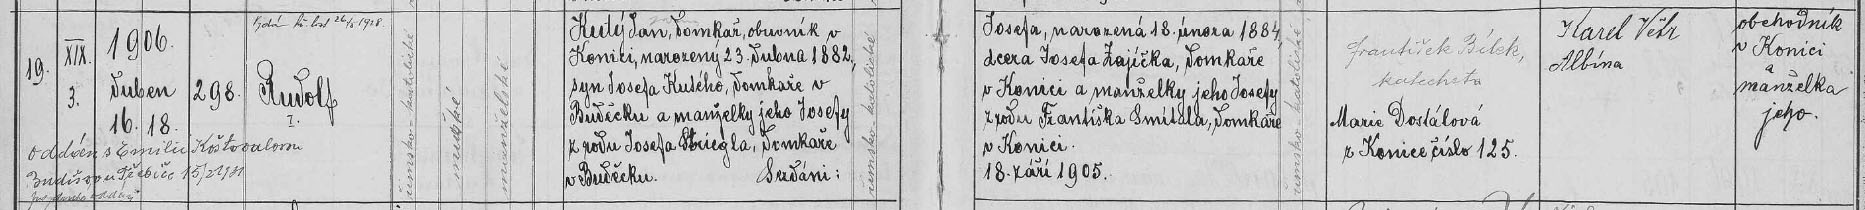 19.
XIX.
3.
1906.
Duben
16. 18.
298.
Rudolf
I.
římsko-katolické
mužské
manželské
Kutý Jan, domkař, obuvník v
Konici, narozený 23. dubna 1882,
syn Josefa Kutého, domkaře v
Buděcku a manželky jeho Josefy
z rodu Josefa Striegla, domkaře
v Buděcku. Sezdáni:
římsko-katolické
Josefa, narozená 18. února 1884,
dcera Josefa Zajíčka, domkaře
v Konici a manželky jeho Josefy
z rodu Františka Smitala, domkaře
v Konici.
18. září 1905.
římsko-katolické
František Bílek,
katecheta
Marie Dostálová
z Konice číslo 125.
Karel Vétr
Albína
obchodník
v Konici
a
manželka
jeho.
oddán s Emilií